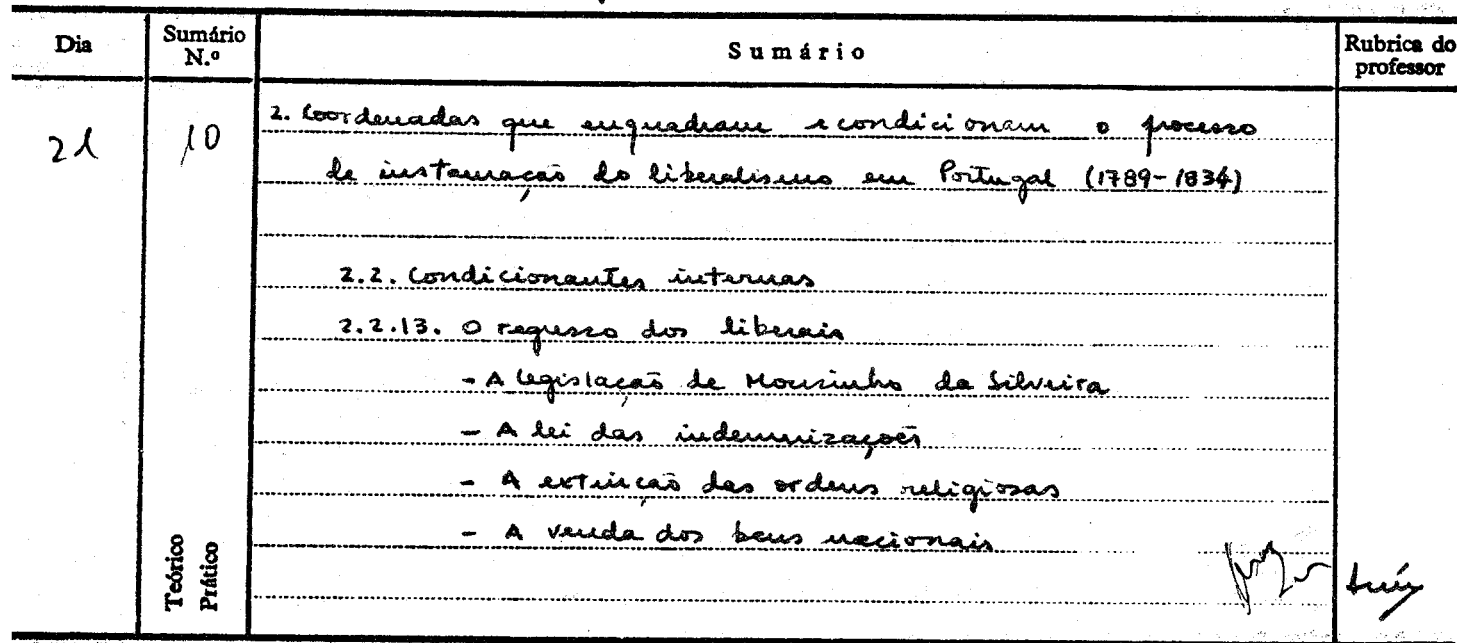 Dia
Sumário N.º
Sumário
Rubrica do professor
21
10
2. Coordenadas que enquadram e condicionam o processo
de instauração do liberalismo em Portugal (1789-1834)
2.2. Condicionantes internas
2.2.13. O regresso dos liberais
- A legislação de Mousinho da Silveira
- A lei das indemnizações
- A extinção das ordens religiosas
- A venda dos bens nacionais
Teórico
Prático